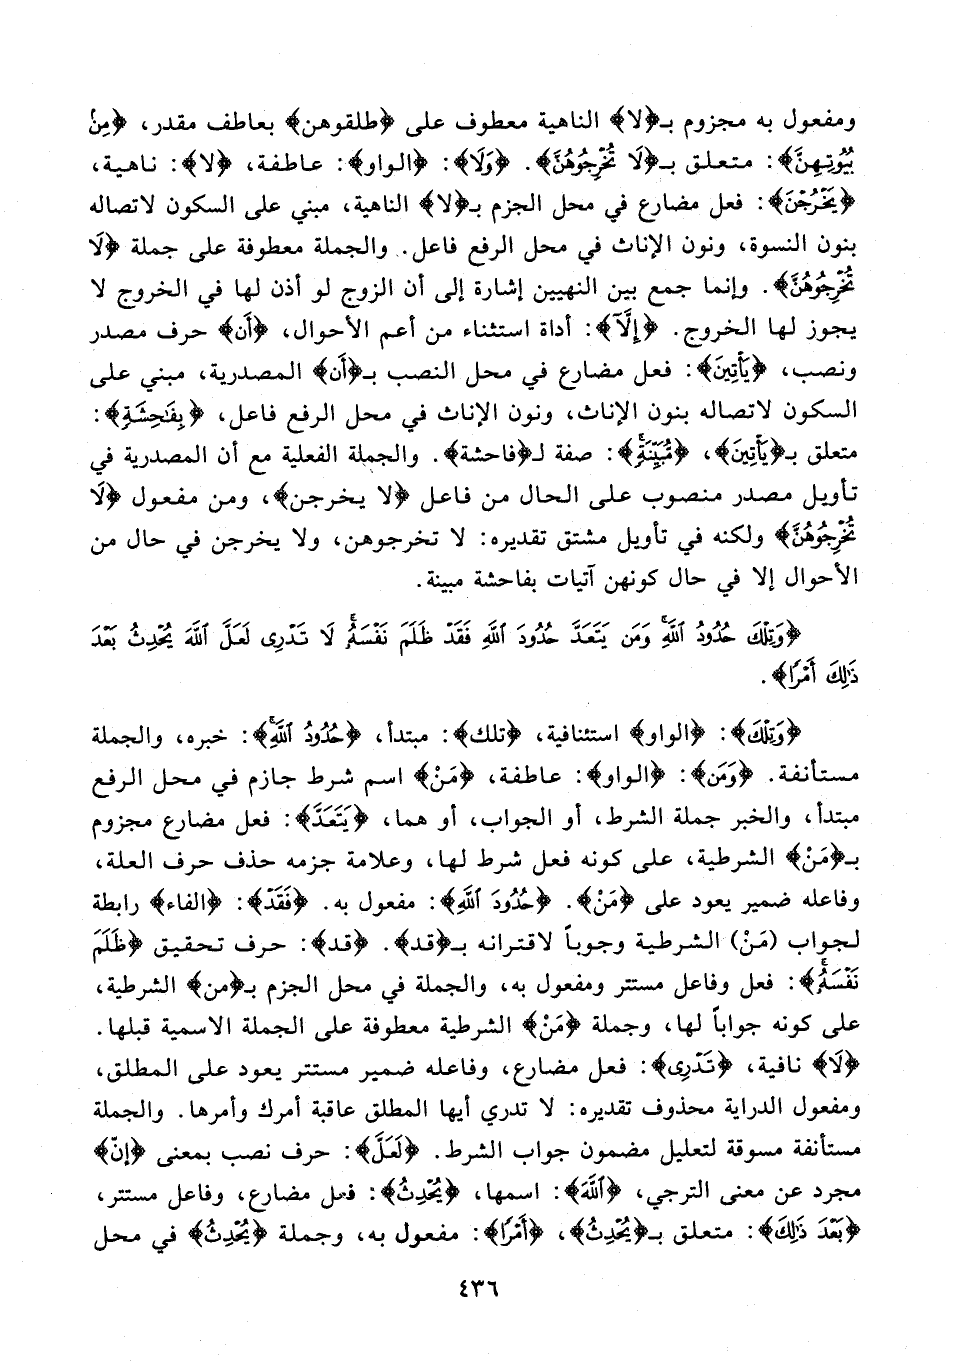 ومفعول به مجزوم بـ﴿لا﴾ الناهية معطوف على ﴿طلقوهن﴾ بعاطف مقدر، ﴿مِنْ
بُيُوتِهِنَّ﴾: متعلق بـ﴿لَا تُخْرِجُوهُنَّ﴾. ﴿وَلَا﴾: ﴿الواو﴾: عاطفة، ﴿لا﴾: ناهية،
﴿يَخْرُجْنَ﴾: فعل مضارع في محل الجزم بـ﴿لا﴾ الناهية، مبني على السكون لاتصاله
بنون النسوة، ونون الإناث في محل الرفع فاعل. والجملة معطوفة على جملة ﴿لَا
تُخْرِجُوهُنَّ﴾. وإنما جمع بين النهيين إشارة إلى أن الزوج لو أذن لها في الخروج لا
يجوز لها الخروج. ﴿إِلَّآ﴾: أداة استثناء من أعم الأحوال، ﴿أَن﴾ حرف مصدر
ونصب، ﴿يَأْتِينَ﴾: فعل مضارع في محل النصب بـ﴿أَن﴾ المصدرية، مبني على
السكون لاتصاله بنون الإناث، ونون الإناث في محل الرفع فاعل، ﴿بِفَٰحِشَةٍ﴾:
متعلق بـ﴿يَأْتِينَ﴾، ﴿مُّبَيِّنَةٍ﴾: صفة لـ﴿فاحشة﴾. والجملة الفعلية مع أن المصدرية في
تأويل مصدر منصوب على الحال من فاعل ﴿لا يخرجن﴾، ومن مفعول ﴿لَا
تُخْرِجُوهُنَّ﴾ ولكنه في تأويل مشتق تقديره: لا تخرجوهن، ولا يخرجن في حال من
الأحوال إلا في حال كونهن آتيات بفاحشة مبينة.
﴿وَتِلْكَ حُدُودُ ٱللَّهِۚ وَمَن يَتَعَدَّ حُدُودَ ٱللَّهِ فَقَدْ ظَلَمَ نَفْسَهُۥۚ لَا تَدْرِى لَعَلَّ ٱللَّهَ يُحْدِثُ بَعْدَ
ذَٰلِكَ أَمْرًا﴾.
﴿وَتِلْكَ﴾: ﴿الواو﴾ استئنافية، ﴿تلك﴾: مبتدأ، ﴿حُدُودُ ٱللَّهِۚ﴾: خبره، والجملة
مستأنفة. ﴿وَمَن﴾: ﴿الواو﴾: عاطفة، ﴿مَنْ﴾ اسم شرط جازم في محل الرفع
مبتدأ، والخبر جملة الشرط، أو الجواب، أو هما، ﴿يَتَعَدَّ﴾: فعل مضارع مجزوم
بـ﴿مَنْ﴾ الشرطية، على كونه فعل شرط لها، وعلامة جزمه حذف حرف العلة،
وفاعله ضمير يعود على ﴿مَنْ﴾. ﴿حُدُودَ ٱللَّهِ﴾: مفعول به. ﴿فَقَدْ﴾: ﴿الفاء﴾ رابطة
لجواب (مَنْ) الشرطية وجوباً لاقترانه بـ﴿قد﴾. ﴿قد﴾: حرف تحقيق ﴿ظَلَمَ
نَفْسَهُۥۚ﴾: فعل وفاعل مستتر ومفعول به، والجملة في محل الجزم بـ﴿من﴾ الشرطية،
على كونه جواباً لها، وجملة ﴿مَنْ﴾ الشرطية معطوفة على الجملة الاسمية قبلها.
﴿لَا﴾ نافية، ﴿تَدْرِى﴾: فعل مضارع، وفاعله ضمير مستتر يعود على المطلق،
ومفعول الدراية محذوف تقديره: لا تدري أيها المطلق عاقبة أمرك وأمرها. والجملة
مستأنفة مسوقة لتعليل مضمون جواب الشرط. ﴿لَعَلَّ﴾: حرف نصب بمعنى ﴿إنّ﴾
مجرد عن معنى الترجي، ﴿ٱللَّهَ﴾: اسمها، ﴿يُحْدِثُ﴾: فعل مضارع، وفاعل مستتر،
﴿بَعْدَ ذَٰلِكَ﴾: متعلق بـ﴿يُحْدِثُ﴾، ﴿أَمْرًا﴾: مفعول به، وجملة ﴿يُحْدِثُ﴾ في محل
٤٣٦